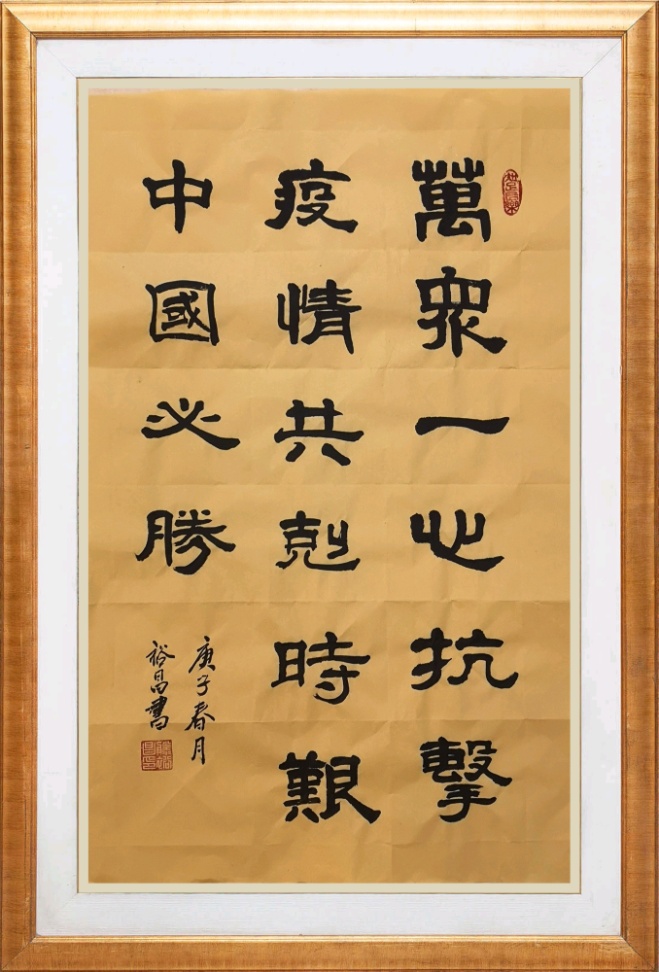 萬衆一心抗擊
疫情共剋時艱
中國必勝
庚子春月
裕昌書